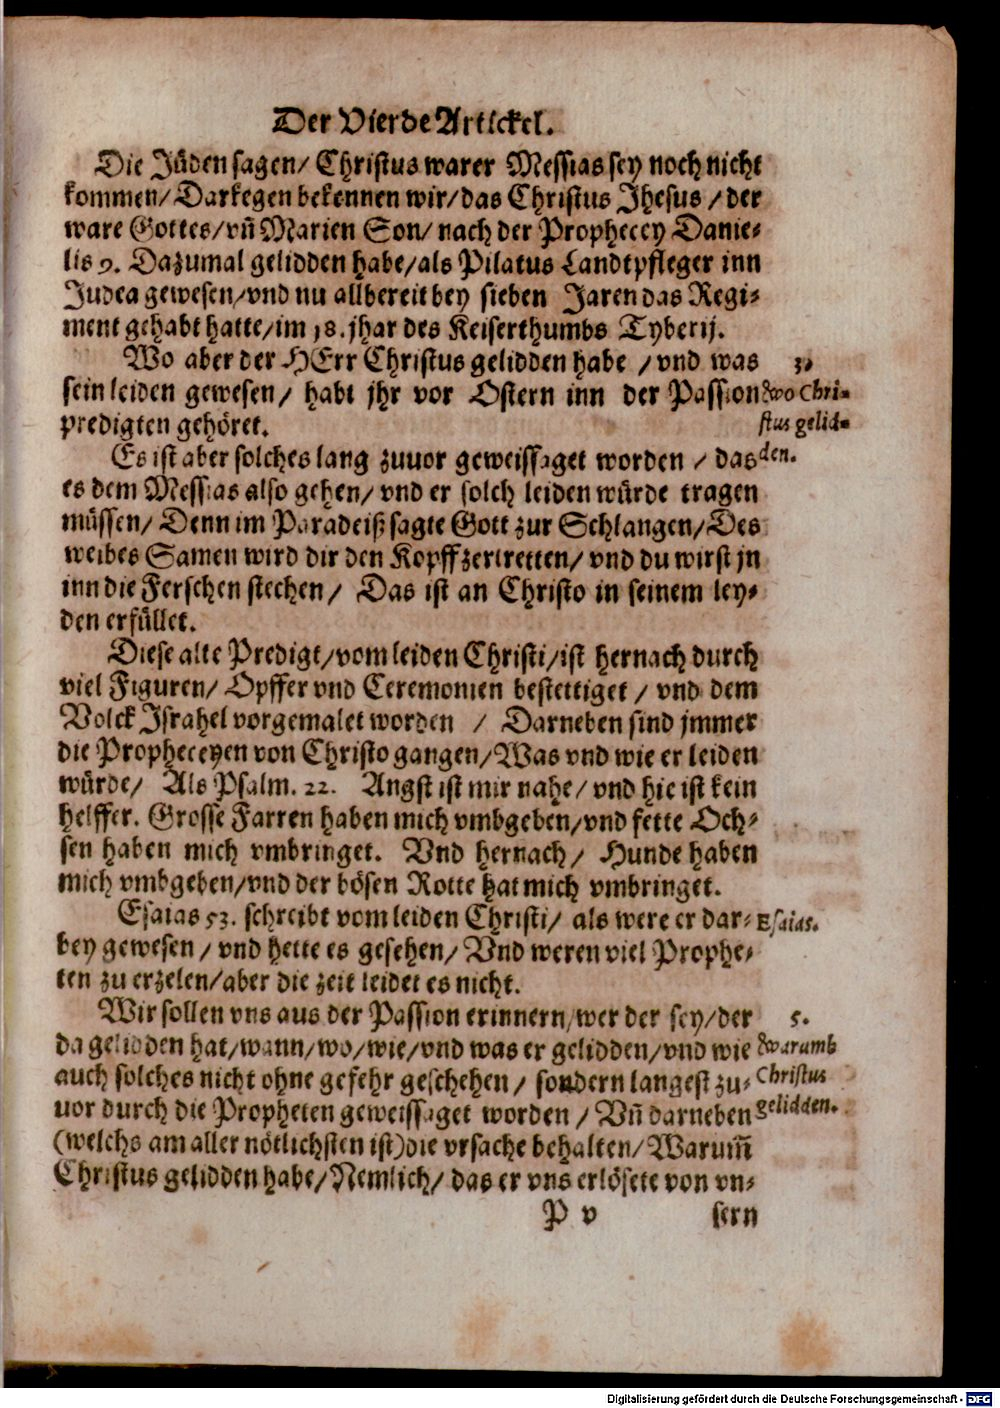 Der Vierde Artickel.
Die Jüden sagen/ Christus warer Messias sey noch nicht
kommen/ Darkegen bekennen wir/ das Christus Jhesus/ der
ware Gottes/ vñ Marien Son/ nach der Prophecey Danie-
lis 9. Dazumal gelidden habe/ als Pilatus Landtpfleger inn
Judea gewesen/ vnd nu allbereit bey sieben Jaren das Regi-
ment gehabt hatte/ im 18. jhar des Keiserthumbs Tyberij.
Wo aber der HErr Christus gelidden habe/ vnd was
sein leiden gewesen/ habt jhr vor Ostern inn der Passion
predigten gehöret.
3.
Wo Chri-
stus gelid-
den.
Es ist aber solches lang zuuor geweissaget worden/ das
es dem Messias also gehen/ vnd er solch leiden würde tragen
müssen/ Denn im Paradeiß sagte Gott zur Schlangen/ Des
weibes Samen wird dir den Kopff zertretten/ vnd du wirst jn
inn die Ferschen stechen/ Das ist an Christo in seinem ley-
den erfüllet.
Diese alte Predigt/ vom leiden Christi/ ist hernach durch
viel Figuren/ Opffer vnd Ceremonien bestettiget/ vnd dem
Volck Jsrahel vorgemalet worden/ Darneben sind jmmer
die Propheceyen von Christo gangen/ Was vnd wie er leiden
würde/ Als Psalm. 22. Angst ist mir nahe/ vnd hie ist kein
helffer. Grosse Farren haben mich vmbgeben/ vnd fette Och-
sen haben mich vmbringet. Vnd hernach/ Hunde haben
mich vmbgeben/ vnd der bösen Rotte hat mich vmbringet.
Esaias 53. schreibt vom leiden Christi/ als were er dar-
bey gewesen/ vnd hette es gesehen/ Vnd weren viel Prophe-
ten zu erzelen/ aber die zeit leidet es nicht.
Esaias.
Wir sollen vns aus der Passion erinnern/ wer der sey/ der
da gelidden hat/ wann/ wo/ wie/ vnd was er gelidden/ vnd wie
auch solches nicht ohne gefehr geschehen/ sondern langest zu-
uor durch die Propheten geweissaget worden/ Vñ darneben
(welchs am aller nötlichsten ist) die vrsache behalten/ Warum̃
Christus gelidden habe/ Nemlich/ das er vns erlösete von vn-
5.
Warumb
Christus
gelidden.
P v
sern
Digitalisierung gefördert durch die Deutsche Forschungsgemeinschaft - DFG